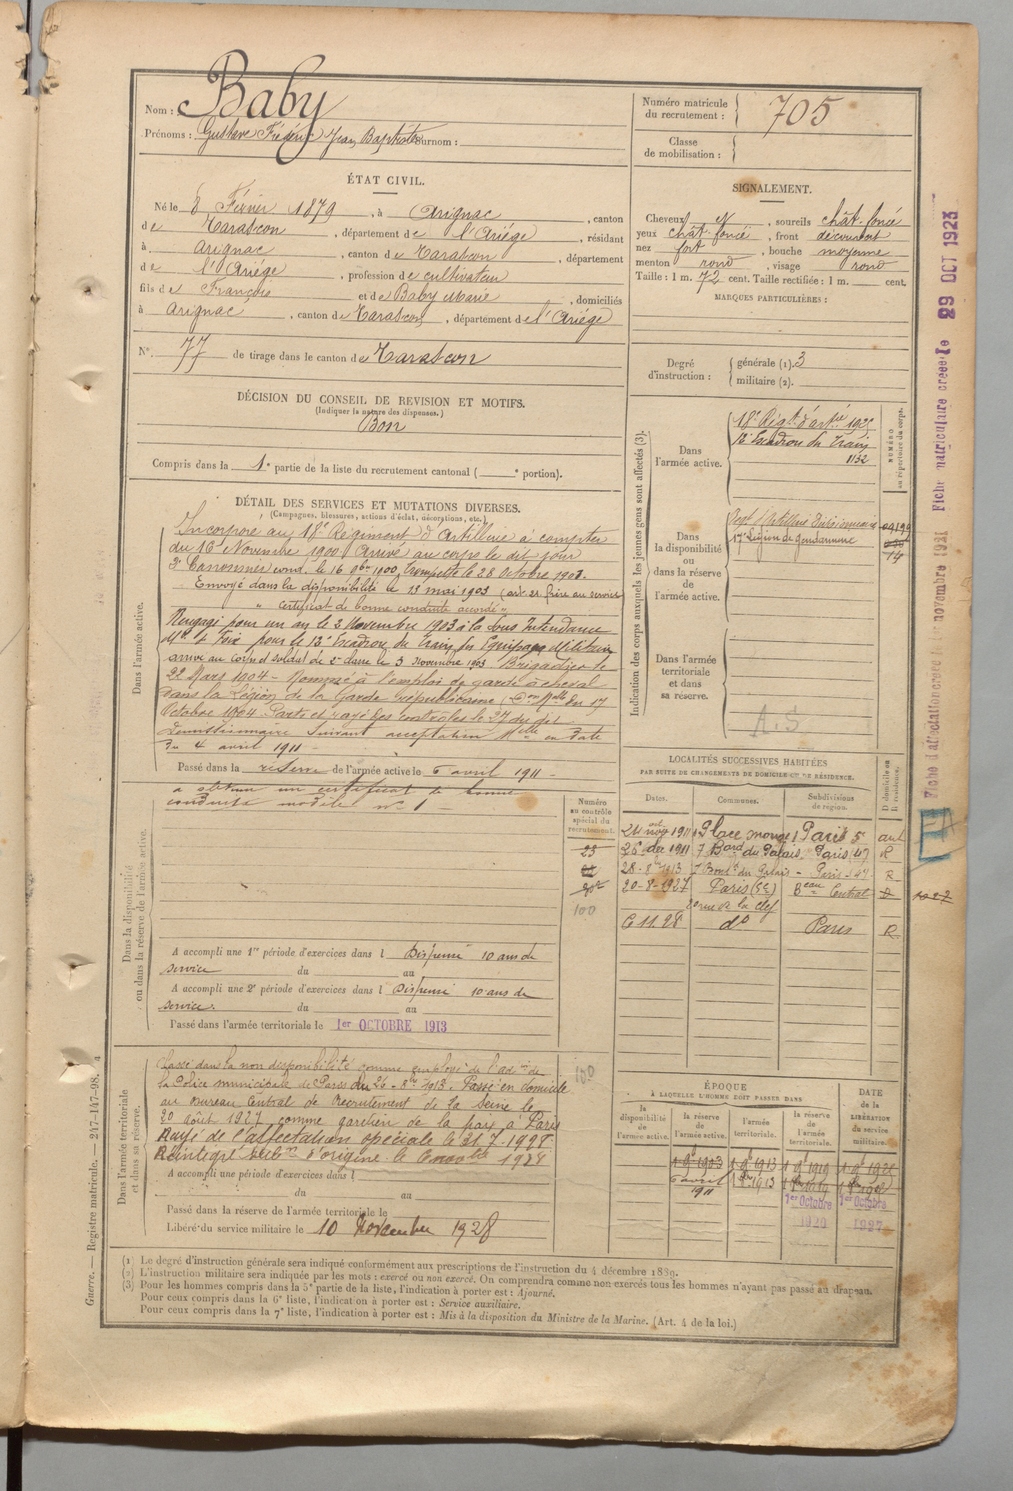 Nom : Baby
Prénoms : Gustave Frédéric Jean Baptiste Surnom :
Numéro matricule du recrutement : 705
Classe de mobilisation :
ÉTAT CIVIL.
Né le 8 Février 1879, à Arignac, canton
de Tarascon, département de l'Ariége, résidant
à Arignac, canton de Tarascon, département
de l'Ariége, profession de cultivateur
fils de François et de Baby Marie, domiciliés
à Arignac, canton de Tarascon, département de l'Ariége
N° 77 de tirage dans le canton de Tarascon
SIGNALEMENT.
Cheveux N, sourcils chât. foncé
yeux chât. foncé, front découvert
nez fort, bouche moyenne
menton rond, visage rond
Taille : 1 m. 72 cent. Taille rectifiée : 1 m. cent.
MARQUES PARTICULIÈRES :
Degré d'instruction : générale (1). 3
militaire (2).
DÉCISION DU CONSEIL DE REVISION ET MOTIFS.
(Indiquer la nature des dispenses.)
Bon
Compris dans la 1e partie de la liste du recrutement cantonal ( e portion).
Indication des corps auxquels les jeunes gens sont affectés (3).
NUMÉRO au répertoire du corps.
Dans l'armée active.
18e Régt d'artie
12e Escadron du Train
1132
Dans la disponibilité ou dans la réserve de l'armée active.
17e Légion de Gendarmerie
14
Dans l'armée territoriale et dans sa réserve.
A.S
DÉTAIL DES SERVICES ET MUTATIONS DIVERSES.
(Campagnes, blessures, actions d'éclat, décorations, etc.)
Dans l'armée active.
Incorporé au 18e Régiment d'Artillerie à compter
du 16 Novembre 1900 Arrivé au corps le dit jour
2e Canonnier cond. le 16 9bre 1900, trompette le 28 Octobre 1901.
Envoyé dans la disponibilité le 13 mai 1903
" Certificat de bonne conduite accordé "
Rengagé pour un an le 3 Novembre 1903 à la Sous Intendance
Mre de Foix pour le 12e Escadron du Train des Equipages Militaires
arrivé au corps et soldat de 2e classe le 3 Novembre 1903 Brigadier le
22 Mars 1904 - Nommé à l'emploi de garde à cheval
dans la Légion de la Garde Républicaine (Don Mlle du 17
Octobre 1904 Parti et rayé des contrôles le 27 du dit
Démissionnaire suivant acceptation Mlle en date
du 4 avril 1911 -
Passé dans la réserve de l'armée active le 6 avril 1911 -
a obtenu un certificat de bonne
conduite modèle n° 1 -
Dans la disponibilité ou dans la réserve de l'armée active.
Numéro au contrôle spécial du recrutement.
23
100
A accompli une 1re période d'exercices dans l Dispensé 10 ans de
service du au
A accompli une 2e période d'exercices dans l Dispensé 10 ans de
service du au
Passé dans l'armée territoriale le 1er OCTOBRE 1913
LOCALITÉS SUCCESSIVES HABITÉES
PAR SUITE DE CHANGEMENTS DE DOMICILE OU DE RÉSIDENCE.
Dates. Communes. Subdivisions de région. D domicile ou R résidence.
1911 Place monge 1 Paris 5e aut
25 dec 1911 7 Bard du Palais Paris (4) R
28-8-1913 7 Bard du Palais - Paris - 4e R
20-8-1927 Paris (5e) Beau Central D
20 rue de la Clef
6.11.28 do Paris R
Dans l'armée territoriale et dans sa réserve.
Classé dans la non disponibilité comme employé de l'admon de
la Police municipale de Paris du 25 1913. Passé en domicile
au Bureau Central de Recrutement de la Seine le
20 août 1927 comme gardien de la paix à Paris
Rayé de l'affectation spéciale le 21.7.1928
Réintégré subdon d'origine le 6 novbre 1928
100
A accompli une période d'exercices dans l
du au
Passé dans la réserve de l'armée territoriale le
Libéré du service militaire le 10 Novembre 1928
ÉPOQUE
À LAQUELLE L'HOMME DOIT PASSER DANS
la disponibilité de l'armée active. la réserve de l'armée active. l'armée territoriale. la réserve de l'armée territoriale. DATE de la LIBÉRATION du service militaire.
1 9 1903 1 9 1913 1 9 1919
6 avril 1911
1er Octobre 1920
1er Octobre 1927
(1) Le degré d'instruction générale sera indiqué conformément aux prescriptions de l'instruction du 4 décembre 1889.
(2) L'instruction militaire sera indiquée par les mots : exercé ou non exercé. On comprendra comme non exercés tous les hommes n'ayant pas passé au drapeau.
(3) Pour les hommes compris dans la 5e partie de la liste, l'indication à porter est : Ajourné.
Pour ceux compris dans la 6e liste, l'indication à porter est : Service auxiliaire.
Pour ceux compris dans la 7e liste, l'indication à porter est : Mis à la disposition du Ministre de la Marine. (Art. 4 de la loi.)
Guerre. — Registre matricule. — 247-147-98.
Fiche matriculaire créée le 29 OCT 1923